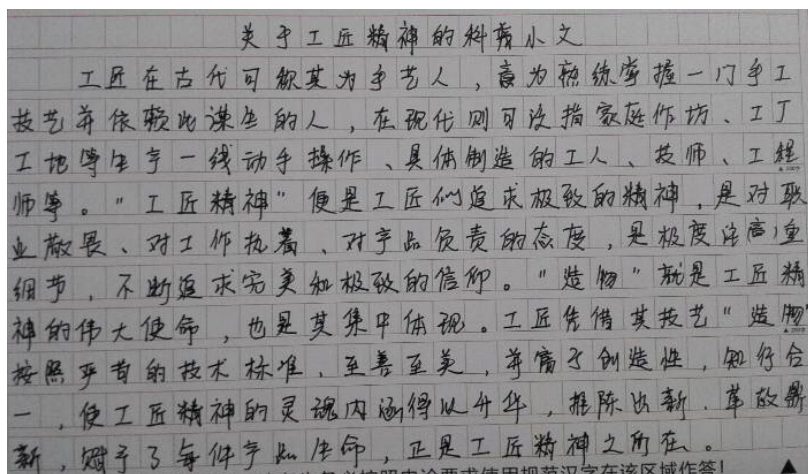 关于工匠精神的科普小文
工匠在古代可称其为手艺人，意为熟练掌握一门手工
技艺并依赖此谋生的人，在现代则可没指家庭作坊、工厂
工地等生产一线动手操作、具体制造的工人、技师、工程
师等。“工匠精神”便是工匠们追求极致的精神，是对职
业敬畏、对工作执着、对产品负责的态度，是极度注重
细节，不断追求完美和极致的信仰。“造物”就是工匠精
神的伟大使命，也是其集中体现。工匠凭借其技艺“造物”
按照严苛的技术标准、至善至美，并富于创造性，知行合
一，使工匠精神的灵魂内涵得以升华，推陈出新、革故鼎
新，赋予了每件产品生命，正是工匠精神之所在。
必按照申论要求使用规范汉字在该区域作答！